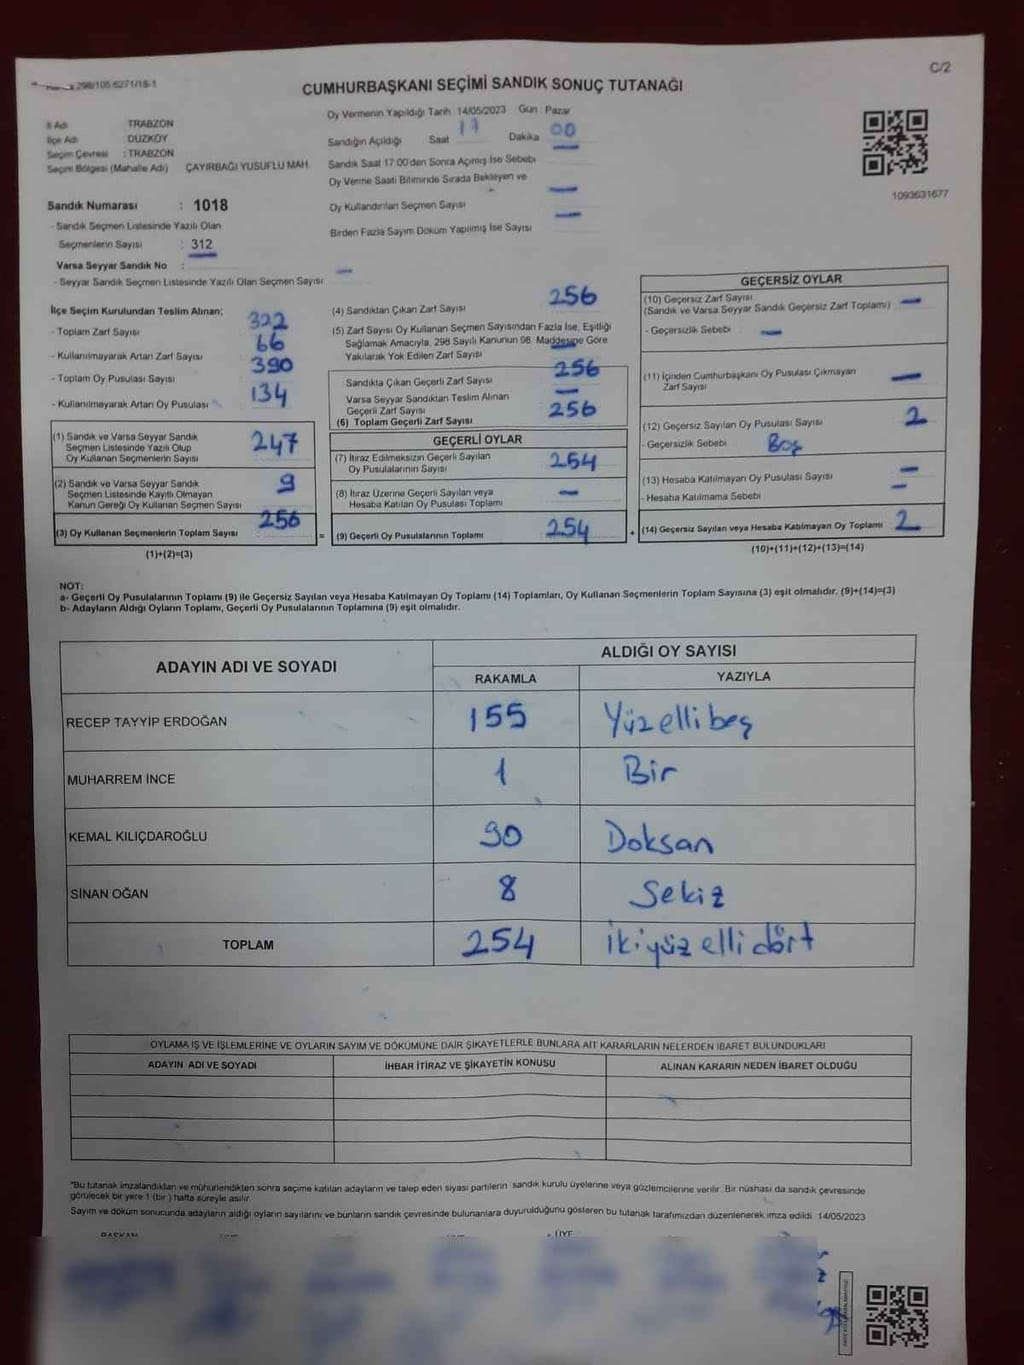 298/105.6271/18-1
C/2
CUMHURBAŞKANI SEÇİMİ SANDIK SONUÇ TUTANAĞI
İl Adı TRABZON
İlçe Adı DÜZKÖY
Seçim Çevresi : TRABZON
Seçim Bölgesi (Mahalle Adı) ÇAYIRBAĞI YUSUFLU MAH.
Sandık Numarası : 1018
- Sandık Seçmen Listesinde Yazılı Olan
Seçmenlerin Sayısı : 312
Varsa Seyyar Sandık No :
- Seyyar Sandık Seçmen Listesinde Yazılı Olan Seçmen Sayısı : —
Oy Vermenin Yapıldığı Tarih 14/05/2023 Gün : Pazar
Sandığın Açıldığı Saat 17 Dakika 00
Sandık Saat 17:00'den Sonra Açılmış İse Sebebi —
Oy Verme Saati Bitiminde Sırada Bekleyen ve
Oy Kullandırılan Seçmen Sayısı —
Birden Fazla Sayım Döküm Yapılmış İse Sayısı —
1093631677
İlçe Seçim Kurulundan Teslim Alınan;
- Toplam Zarf Sayısı 322
- Kullanılmayarak Artan Zarf Sayısı 66
- Toplam Oy Pusulası Sayısı 390
- Kullanılmayarak Artan Oy Pusulası 134
(1) Sandık ve Varsa Seyyar Sandık
Seçmen Listesinde Yazılı Olup
Oy Kullanan Seçmenlerin Sayısı 247
(2) Sandık ve Varsa Seyyar Sandık
Seçmen Listesinde Kayıtlı Olmayan
Kanun Gereği Oy Kullanan Seçmen Sayısı 9
(3) Oy Kullanan Seçmenlerin Toplam Sayısı 256
(1)+(2)=(3)
(4) Sandıktan Çıkan Zarf Sayısı 256
(5) Zarf Sayısı Oy Kullanan Seçmen Sayısından Fazla İse, Eşitliği
Sağlamak Amacıyla, 298 Sayılı Kanunun 98. Maddesine Göre
Yakılarak Yok Edilen Zarf Sayısı —
Sandıkta Çıkan Geçerli Zarf Sayısı 256
Varsa Seyyar Sandıktan Teslim Alınan
Geçerli Zarf Sayısı —
(6) Toplam Geçerli Zarf Sayısı 256
GEÇERLİ OYLAR
(7) İtiraz Edilmeksizin Geçerli Sayılan
Oy Pusulalarının Sayısı 254
(8) İtiraz Üzerine Geçerli Sayılan veya
Hesaba Katılan Oy Pusulası Toplamı —
= (9) Geçerli Oy Pusulalarının Toplamı 254
GEÇERSİZ OYLAR
(10) Geçersiz Zarf Sayısı
(Sandık ve Varsa Seyyar Sandık Geçersiz Zarf Toplamı) —
- Geçersizlik Sebebi : —
(11) İçinden Cumhurbaşkanı Oy Pusulası Çıkmayan
Zarf Sayısı —
(12) Geçersiz Sayılan Oy Pusulası Sayısı 2
- Geçersizlik Sebebi : Boş
(13) Hesaba Katılmayan Oy Pusulası Sayısı —
- Hesaba Katılmama Sebebi —
+ (14) Geçersiz Sayılan veya Hesaba Katılmayan Oy Toplamı 2
(10)+(11)+(12)+(13)=(14)
NOT:
a- Geçerli Oy Pusulalarının Toplamı (9) ile Geçersiz Sayılan veya Hesaba Katılmayan Oy Toplamı (14) Toplamları, Oy Kullanan Seçmenlerin Toplam Sayısına (3) eşit olmalıdır. (9)+(14)=(3)
b- Adayların Aldığı Oyların Toplamı, Geçerli Oy Pusulalarının Toplamına (9) eşit olmalıdır.
ADAYIN ADI VE SOYADI
ALDIĞI OY SAYISI
RAKAMLA YAZIYLA
RECEP TAYYİP ERDOĞAN 155 Yüzellibeş
MUHARREM İNCE 1 Bir
KEMAL KILIÇDAROĞLU 90 Doksan
SİNAN OĞAN 8 Sekiz
TOPLAM 254 ikiyüz elli dört
OYLAMA İŞ VE İŞLEMLERİNE VE OYLARIN SAYIM VE DÖKÜMÜNE DAİR ŞİKAYETLERLE BUNLARA AİT KARARLARIN NELERDEN İBARET BULUNDUKLARI
ADAYIN ADI VE SOYADI İHBAR İTİRAZ VE ŞİKAYETİN KONUSU ALINAN KARARIN NEDEN İBARET OLDUĞU
*Bu tutanak imzalandıktan ve mühürlendikten sonra seçime katılan adayların ve talep eden siyasi partilerin sandık kurulu üyelerine veya gözlemcilerine verilir. Bir nüshası da sandık çevresinde
görülecek bir yere 1 (bir) hafta süreyle asılır.
Sayım ve döküm sonucunda adayların aldığı oyların sayılarını ve bunların sandık çevresinde bulunanlara duyurulduğunu gösteren bu tutanak tarafımızdan düzenlenerek imza edildi. 14/05/2023
BAŞKAN ÜYE